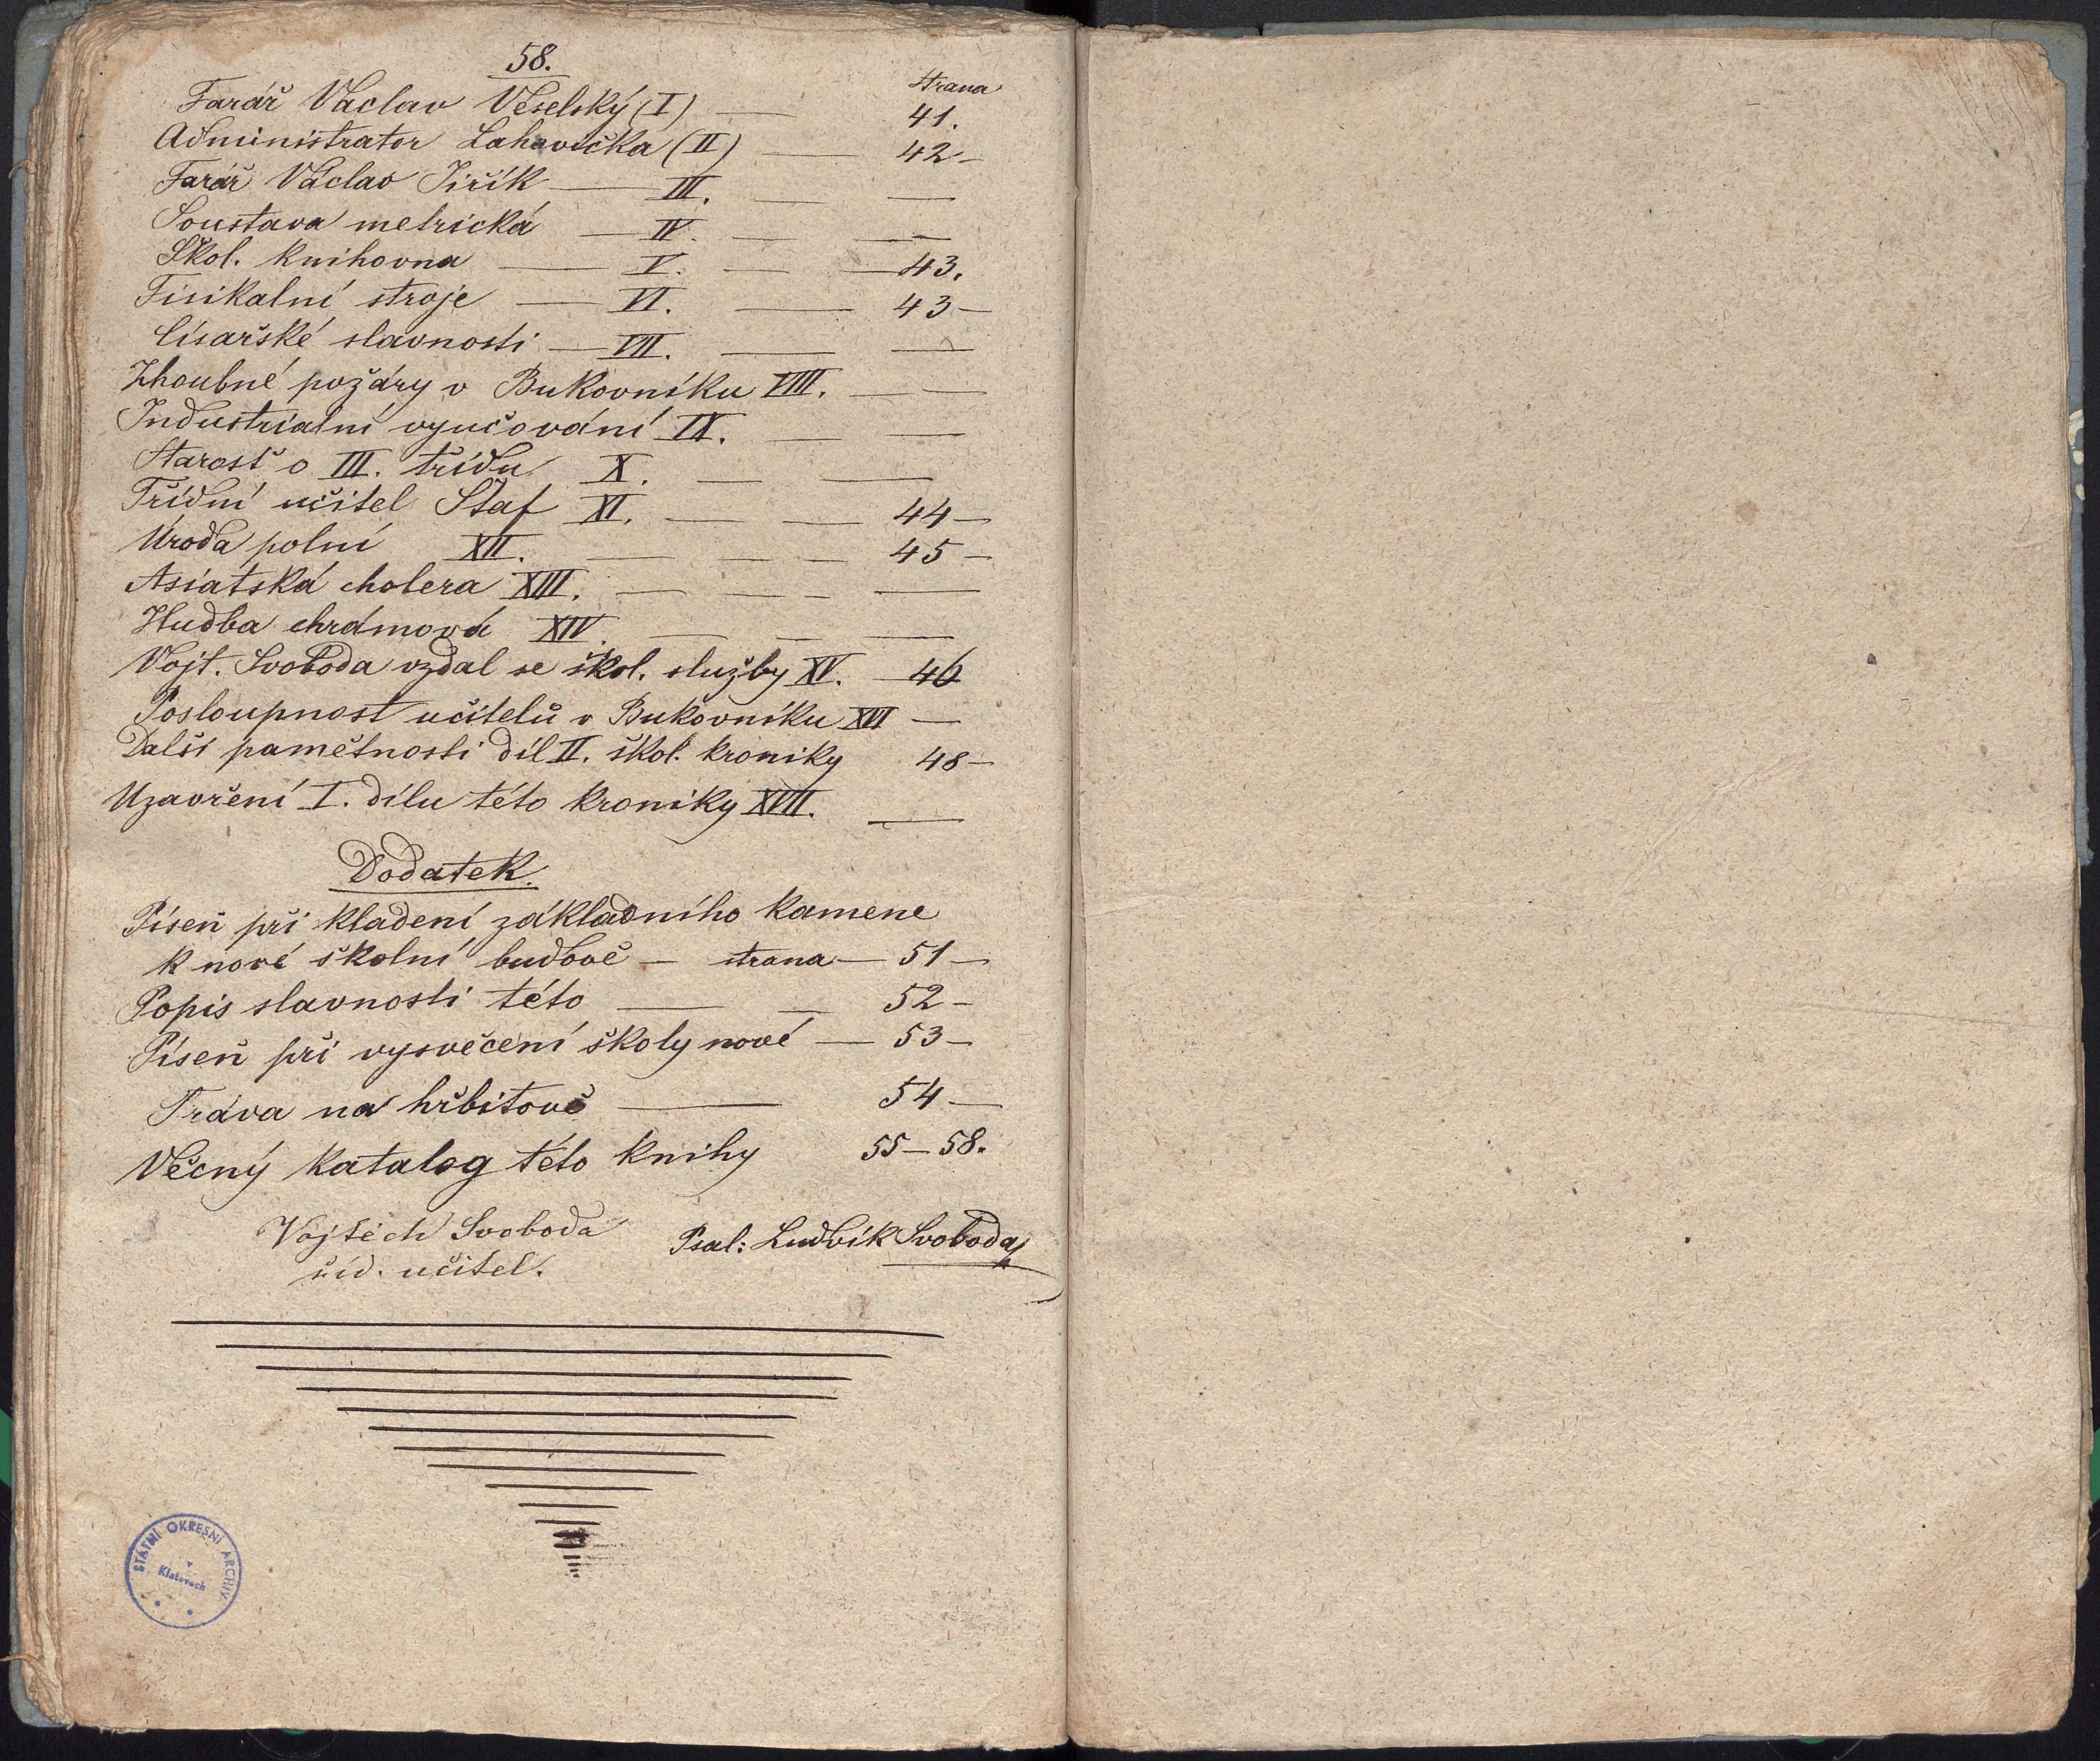 58.
strana
Farář Václav Veselský (I) — 41.
Administrator Lahovička (II) — 42 —
Farář Václav Jiřík — III. — —
Soustava metrická — IV. — —
Škol. knihovna — V. — — 43.
Fisikalní stroje — VI. — 43 —
Císařské slavnosti — VII. — —
Zhoubné požáry v Bukovníku VIII. —
Industrialní vyučování IX. — —
Starosť o III. třídu X. — —
Třídní učitel Štaf XI. — — 44 —
Úroda polní XII. — — — 45 —
Asiatská cholera XIII. — — — —
Hudba chrámová XIV. — — —
Vojt. Svoboda vzdal se škol. služby XV. — 46
Posloupnost učitelů v Bukovníku XVI —
Další pamětnosti díl II. škol. kroniky 48 —
Uzavření I. dílu této kroniky XVII. —
Dodatek.
Píseň při kladení základního kamene
k nové školní budově — strana — 51 —
Popis slavnosti této — — 52 —
Píseň při vysvěcení školy nové — 53 —
Tráva na hřbitově — 54 —
Věcný katalog této knihy 55 — 58.
Vojtěch Svoboda
říd. učitel.
Psal: Ludvík Svoboda
STÁTNÍ OKRESNÍ ARCHIV
v
Klatovech